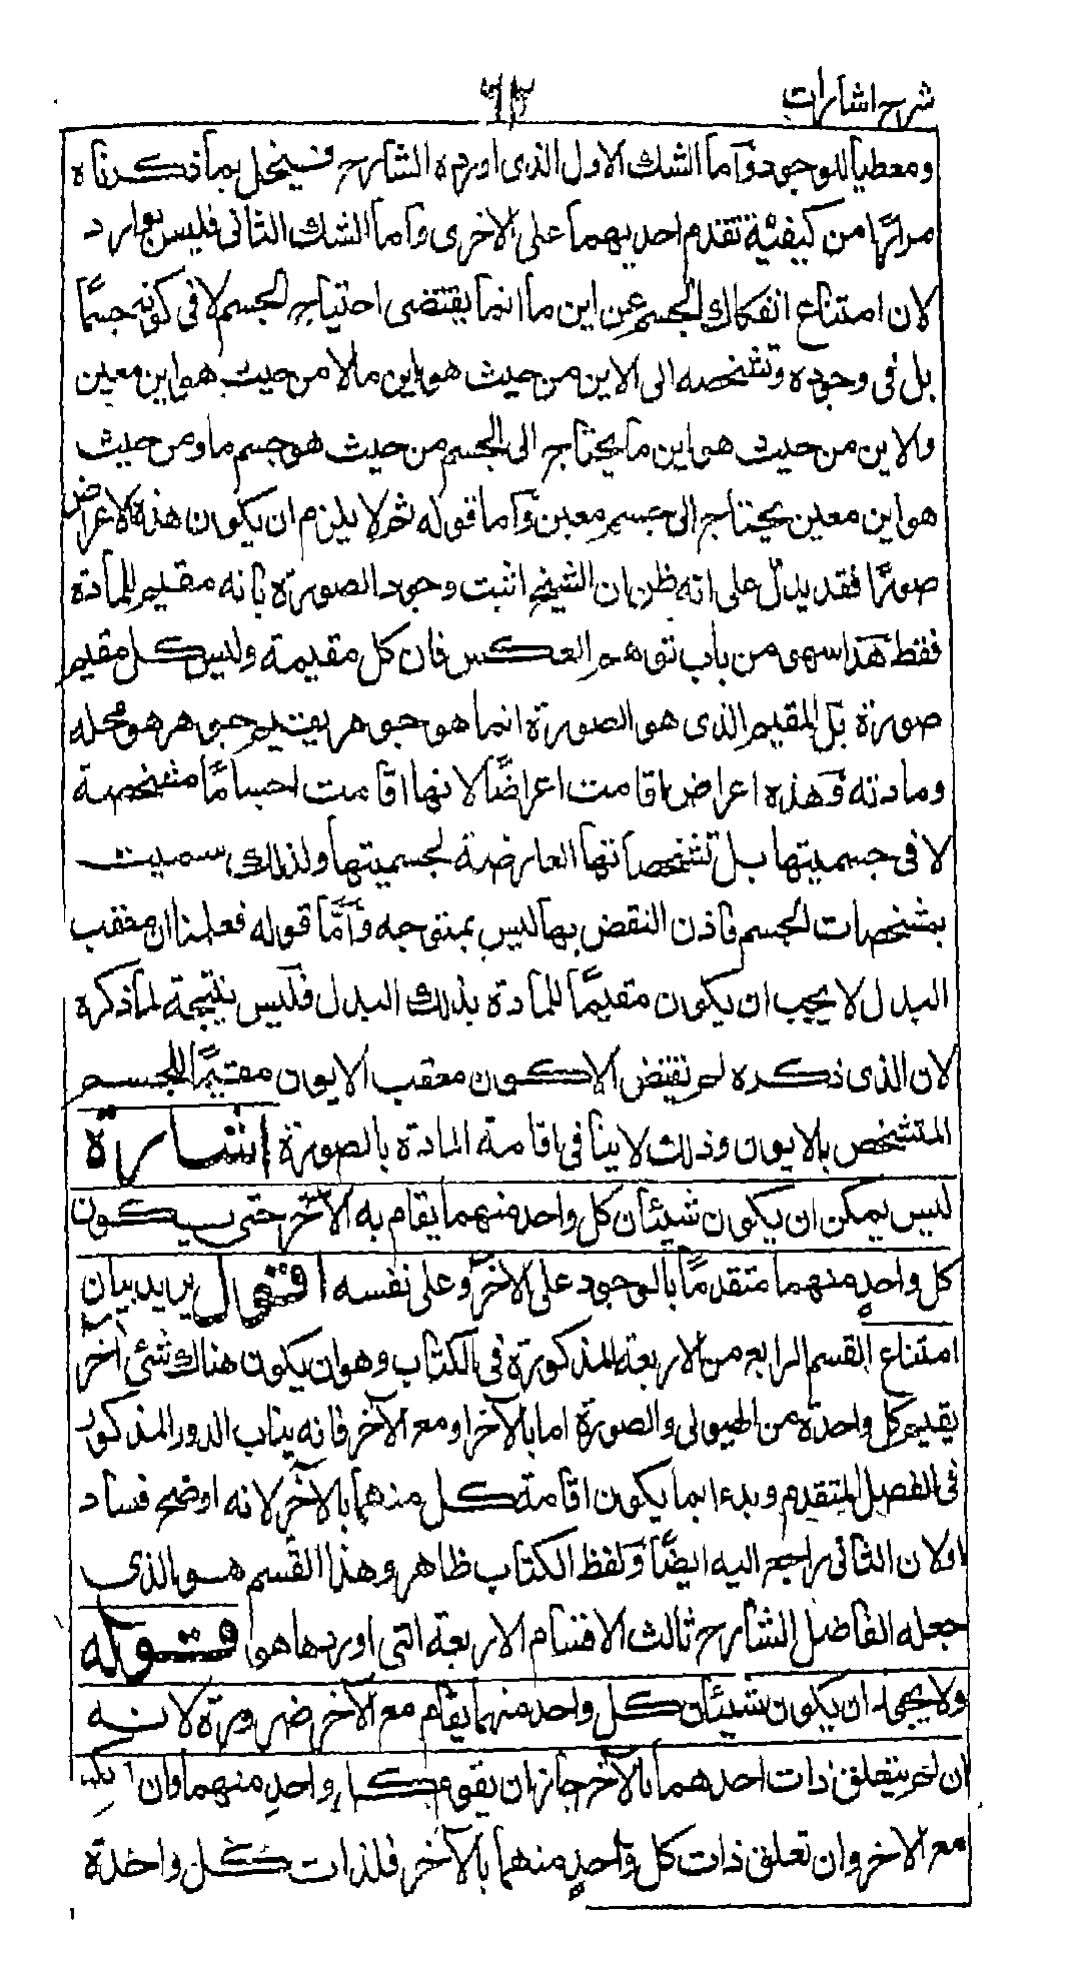 شرح اشارات
٦٢
ومعطيا للوجود وأما الشك الاول الذى اورده الشارح فينحل بما ذكرناه
مرارًا من كيفية تقدم احديهما على الاخرى وأما الشك الثانى فليس بوارد
لان امتناع انفكاك الجسم عن اين ما انما يقتضى احتياج الجسم لا فى كونه جسمًا
بل فى وجوده وتشخصه الى الاين من حيث هو اين ما لا من حيث هو اين معين
والاين من حيث هو اين ما يحتاج الى الجسم من حيث هو جسم ما ومن حيث
هو اين معين يحتاج الى جسم معين وأما قوله ثم لا يلزم ان يكون هذه الاعراض
صورًا فقد يدل على انه ظن ان الشيخ اثبت وجود الصورة بأنه مقيم للمادة
فقط هذا سهى من باب توهم العكس فان كل مقيمة وليس كل مقيم
صورة بل المقيم الذى هو الصورة انما هو جوهر يقيم جوهر هو محله
ومادته وهذه اعراض اقامت اعراضًا لانها اقامت اجسامًا متشخصة
لا فى جسميتها بل تشخصاتها العارضة لجسميتها ولذلك سميت
بمشخصات الجسم فاذن النقض بها ليس بمتوجه وأمّا قوله فعلمنا ان معقب
البدل لا يجب ان يكون مقيمًا للمادة بذلك البدل فليس نتيجة لما ذكره
لان الذى ذكره لم تقتض الا كون معقب الايون مقيمًا للجسم
المتشخص بالايون وذلك لا ينافى اقامة المادة بالصورة اشارة
ليس يمكن ان يكون شيئان كل واحد منهما يقام به الآخر حتى يكون
كل واحدٍ منهما متقدمًا بالوجود على الآخر وعلى نفسه اقول يريد بيان
امتناع القسم الرابع من الاربعة المذكورة فى الكتاب وهو ان يكون هناك شئ آخر
يقيم كل واحدة من الهيولى والصورة اما بالآخر او مع الآخر فانه يناب الدور المذكور
فى الفصل المتقدم وبدء بما يكون اقامة كل منهما بالآخر لانه اوضح فساد
اولان الثانى راجع اليه ايضًا ولفظ الكتاب ظاهر وهذا القسم هو الذى
جعله الفاضل الشارح ثالث الاقسام الاربعة التى اوردها هو قوله
ولا يجوز ان يكون شيئان كل واحد منهما يقام مع الآخر ضرورة لانه
ان لم يتعلق ذات احدهما بالآخر جاز ان يقوم كل واحدٍ منهما وان
مع الاخر وان تعلق ذات كل واحدٍ منهما بالآخر فلذات كل واحدة